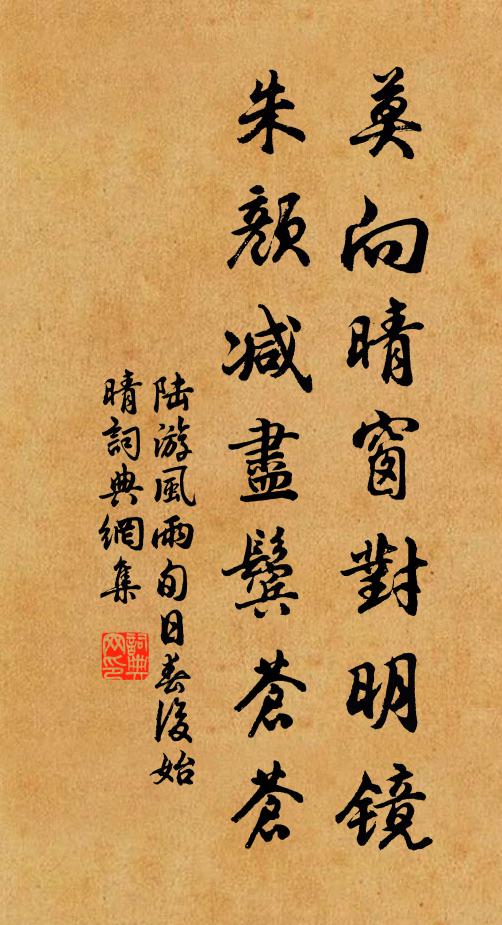 莫向晴窗對明鏡
朱顏减盡鬢蒼蒼
陆游風雨旬日春後始
晴詞典網集
詞典网印